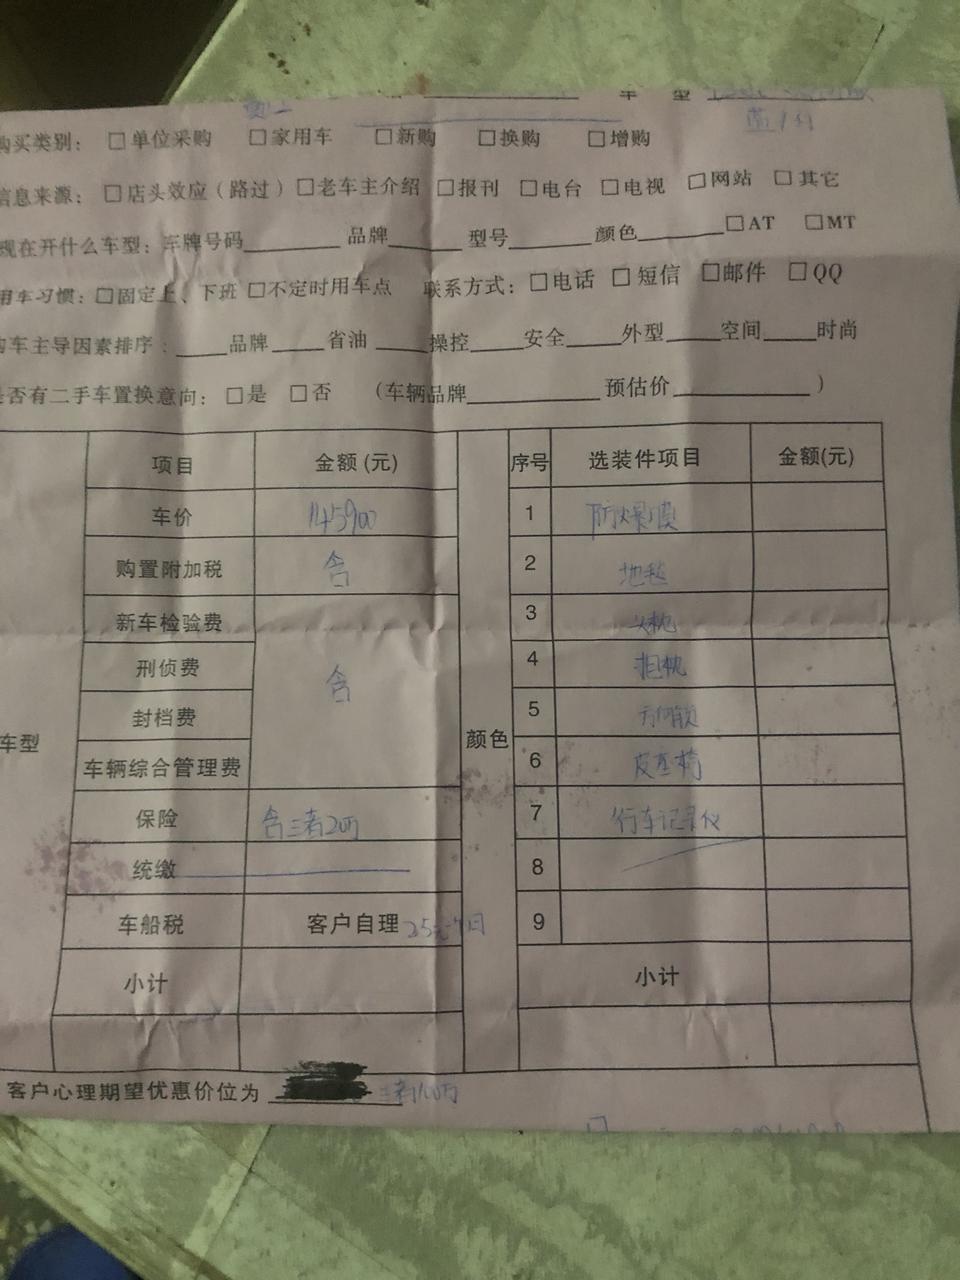 车 型
购买类别: □单位采购 □家用车 □新购 □换购 □增购
信息来源: □店头效应(路过) □老车主介绍 □报刊 □电台 □电视 □网站 □其它
现在开什么车型: 车牌号码________ 品牌______ 型号______ 颜色______ □AT □MT
用车习惯: □固定上、下班 □不定时用车点 联系方式: □电话 □短信 □邮件 □QQ
购车主导因素排序: ____品牌____省油____操控____安全____外型____空间____时尚
是否有二手车置换意向: □是 □否 (车辆品牌__________预估价__________)
项目 金额(元) 序号 选装件项目 金额(元)
车价 145900 1 防爆膜
购置附加税 含 2 地毯
新车检验费 3 头枕
刑侦费 含 4
封档费 5
车型 车辆综合管理费 颜色 6
保险 含三者20万 7 行车记录仪
统缴 8
车船税 客户自理 9
小计 小计
客户心理期望优惠价位为 三者100万